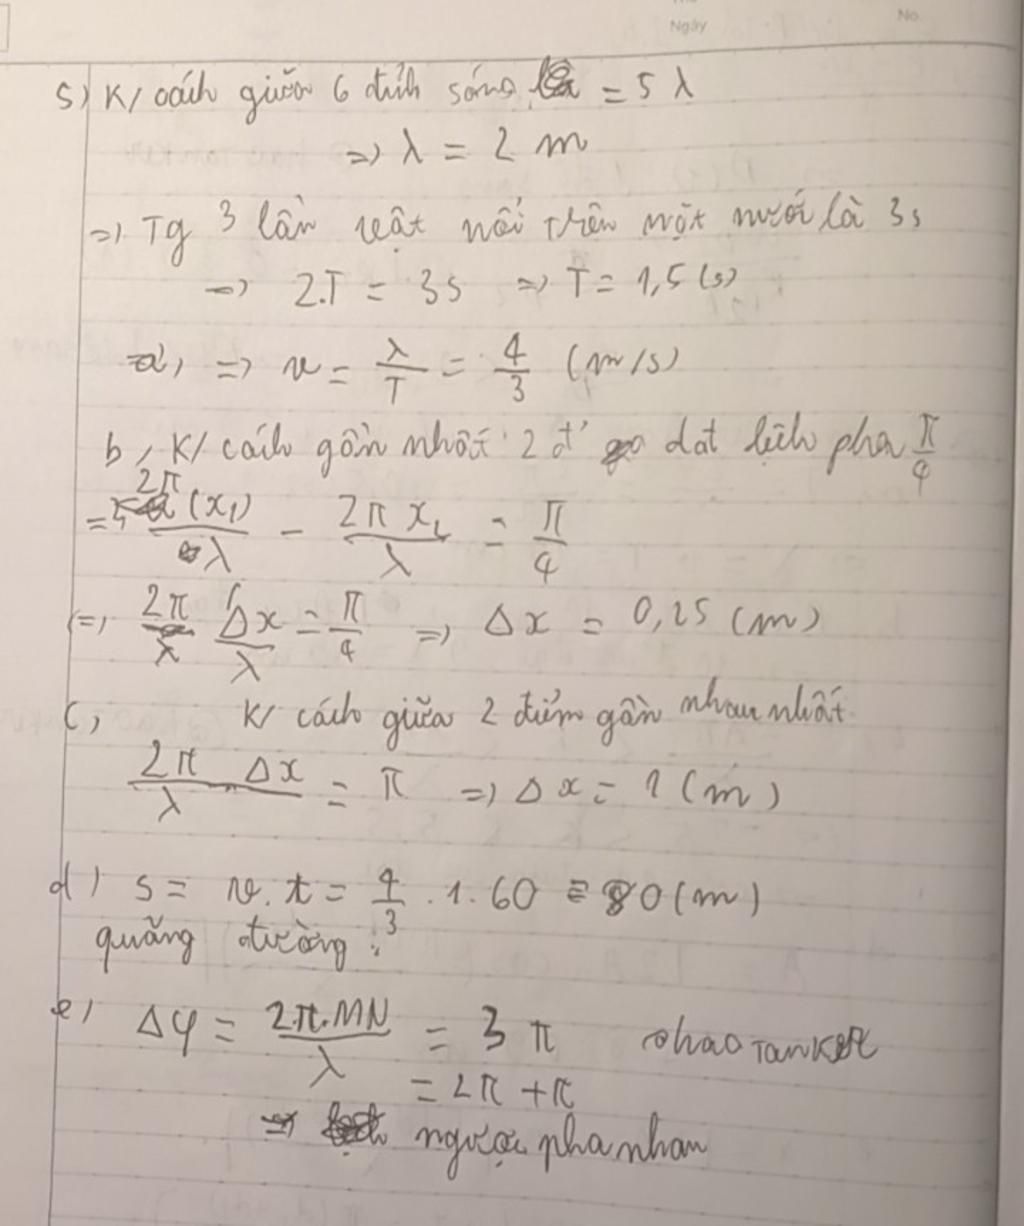 Ngày
No.
5) K/ cách giữa 6 đỉnh sóng = 5 λ
=> λ = 2 m
=> Tg 3 lần vật nổi trên mặt nước là 3s
=> 2.T = 3s => T = 1,5 (s)
a, => v = λ/T = 4/3 (m/s)
b, K/ cách gần nhất 2 đ' dđ lệch pha π/4
= 2π(x₁)/λ - 2π x₂/λ = π/4
=> 2π Δx/λ = π/4 => Δx = 0,25 (m)
c, K/ cách giữa 2 điểm gần nhau nhất
2π Δx/λ = π => Δx = 1 (m)
d) s = v.t = 4/3 . 1.60 = 80 (m)
quãng đường:
e) Δφ = 2π.MN/λ = 3π
= 2π + π
=> ngược pha nhau